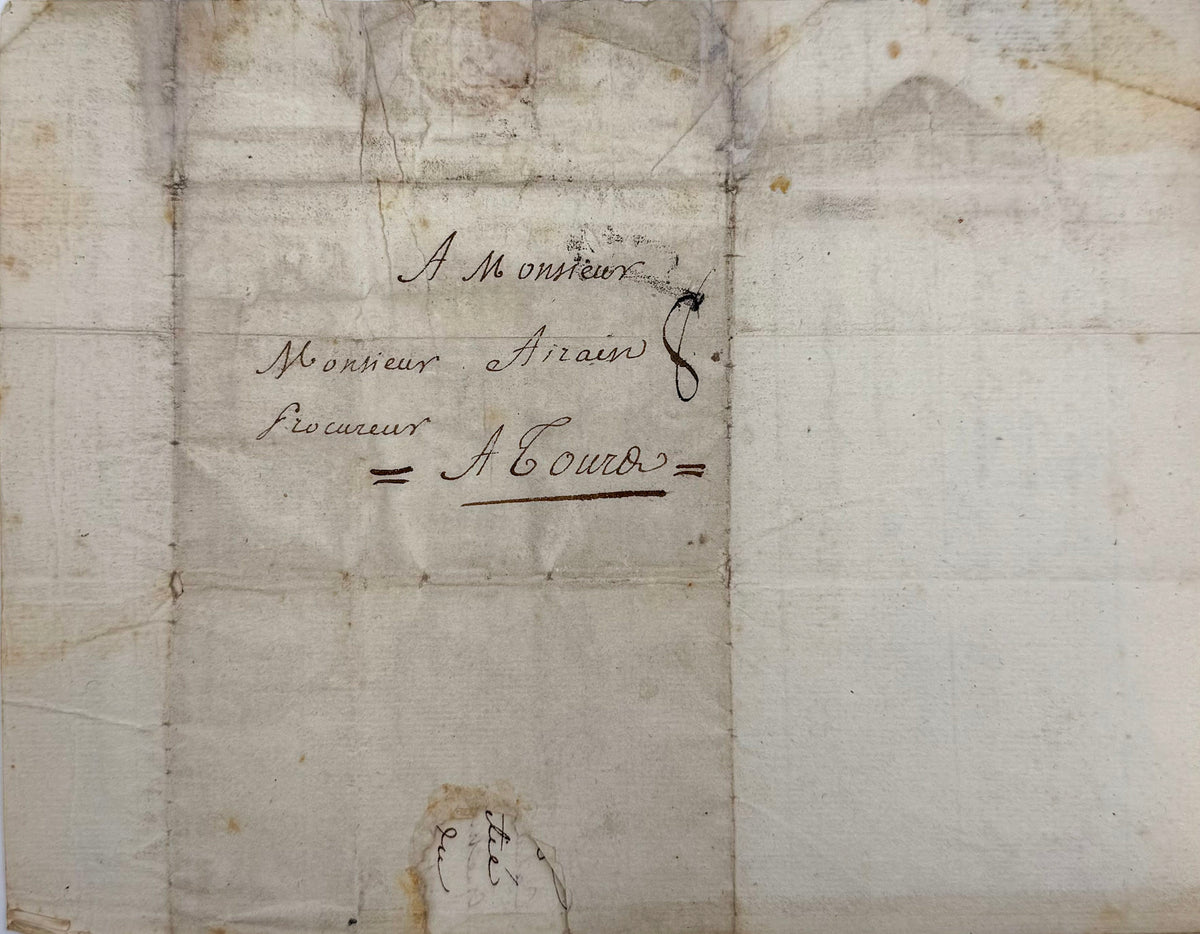 A Monsieur
8
Monsieur Airain
Procureur
= A Tours =